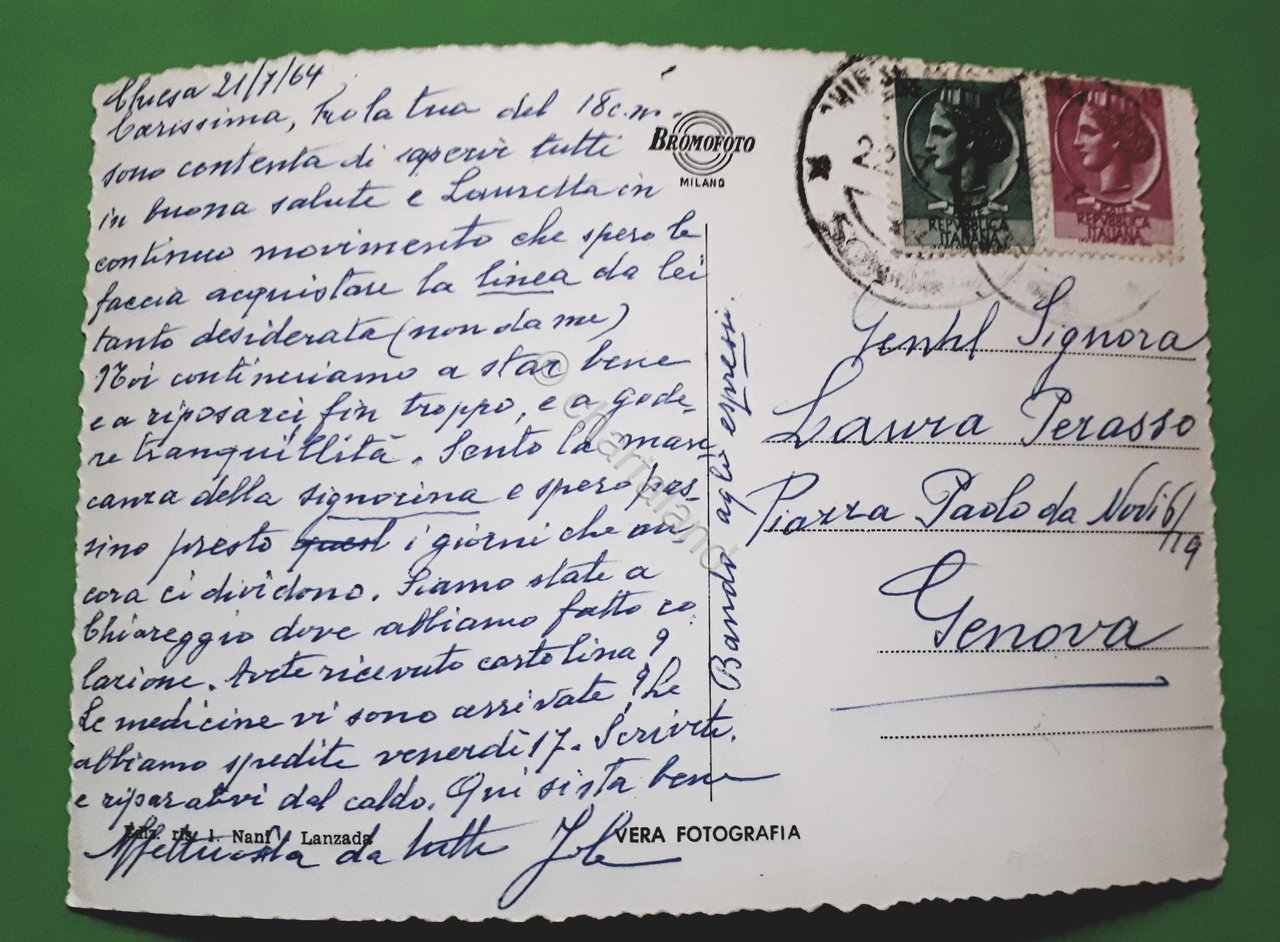 Chiesa 21/7/64
Carissima, ho la tua del 18 c.m.
sono contenta di sapervi tutti
in buona salute e Lauretta in
continuo movimento che spero le
faccia acquistare la linea da lei
tanto desiderata (non da me)
Noi continuiamo a star bene
e a riposarci, fin troppo, e a gode-
re tranquillità. Sento la man-
canza della signorina e spero pas-
sino presto quest i giorni che an-
cora ci dividono. Siamo state a
Chiareggio dove abbiamo fatto co-
lazione. Avete ricevuto cartolina?
Le medicine vi sono arrivate? Le
abbiamo spedite venerdì 17. Scrivete.
e riparatevi dal caldo. Qui si sta bene
da tutte
Ediz. ris. I. Nani - Lanzada
VERA FOTOGRAFIA
Bando agli espressi.
BROMOFOTO
MILANO
REPVBBLICA
ITALIANA
REPVBBLICA
ITALIANA
Gentil Signora
Laura Perasso
Piazza Paolo da Novi 6/
19
Genova
© charlaland